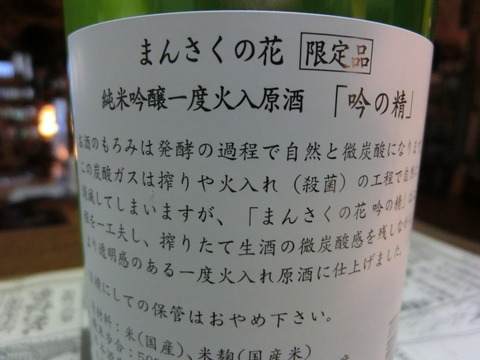 まんさくの花 限定品
純米吟醸一度火入原酒 「吟の精」
お酒のもろみは発酵の過程で自然と微炭酸になりま
この炭酸ガスは搾りや火入れ（殺菌）の工程で自然
減してしまいますが、「まんさくの花 吟の精」
を一工夫し、搾りたて生酒の微炭酸感を残しなが
より透明感のある一度火入れ原酒に仕上げました
横にしての保管はおやめ下さい。
材料：米(国産)、米麹(国産米)